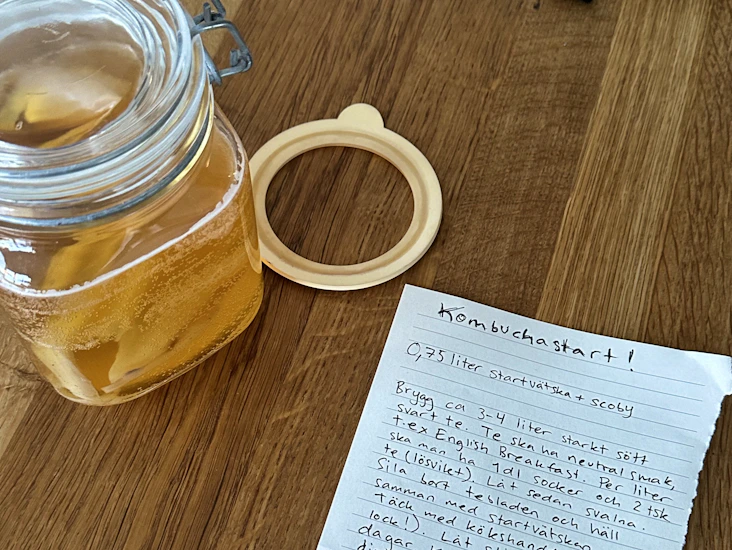 Kombuchastart!
0,75 liter startvätska + scoby
Brygg ca 3-4 liter starkt sött
svart te. Te ska ha neutral smak,
t.ex English Breakfast. Per liter
ska man ha 1 dl socker och 2 tsk
te (lösvikt). Låt sedan svalna.
Sila bort tebladen och häll
samman med startvätskan
Täck med kökshand
lock!). Låt
dagar